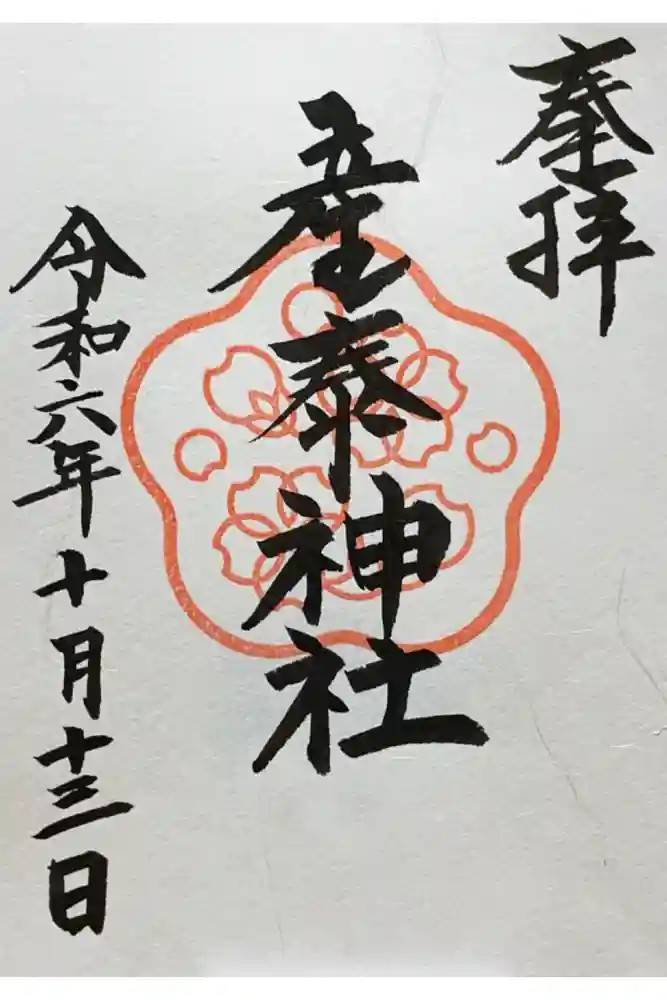 奉拝
産泰神社
令和六年十月十三日